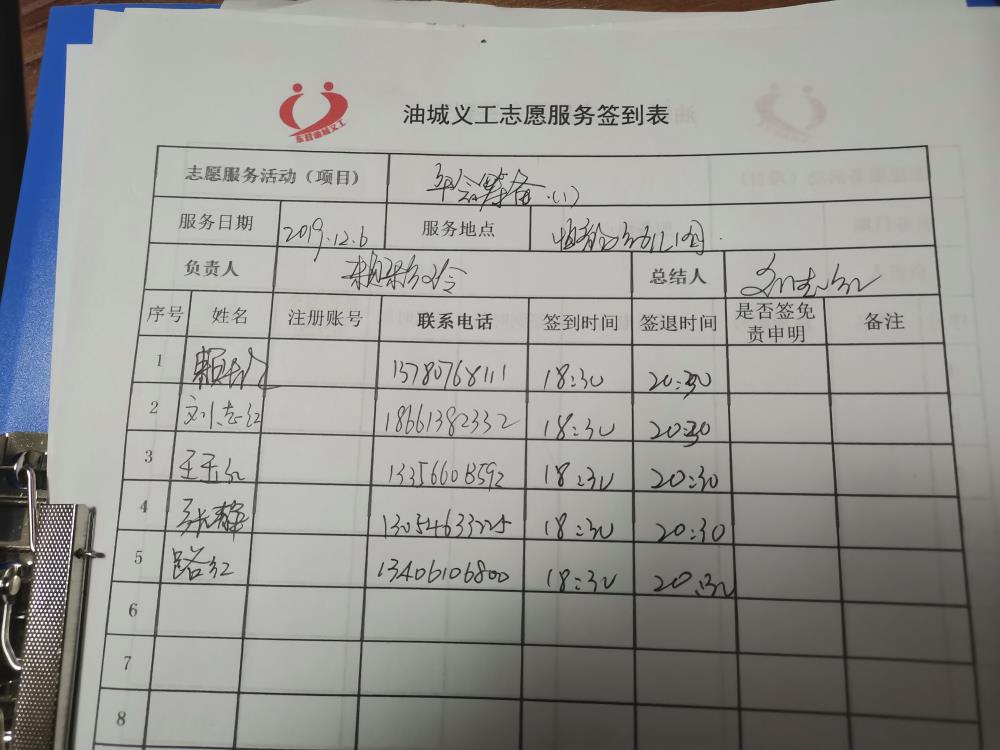 东营油城义工
油城义工志愿服务签到表
志愿服务活动（项目） 年会筹备（1）
服务日期 2019.12.6 服务地点
负责人 总结人 刘志红
序号 姓名 注册账号 联系电话 签到时间 签退时间 是否签免责申明 备注
1 13780768111 18:30 20:30
2 刘志红 18661382332 18:30 20:30
3 王玉红 18:30 20:30
4 张静 13054633225 18:30 20:30
5 路红 13406106800 18:30 20:30
6
7
8